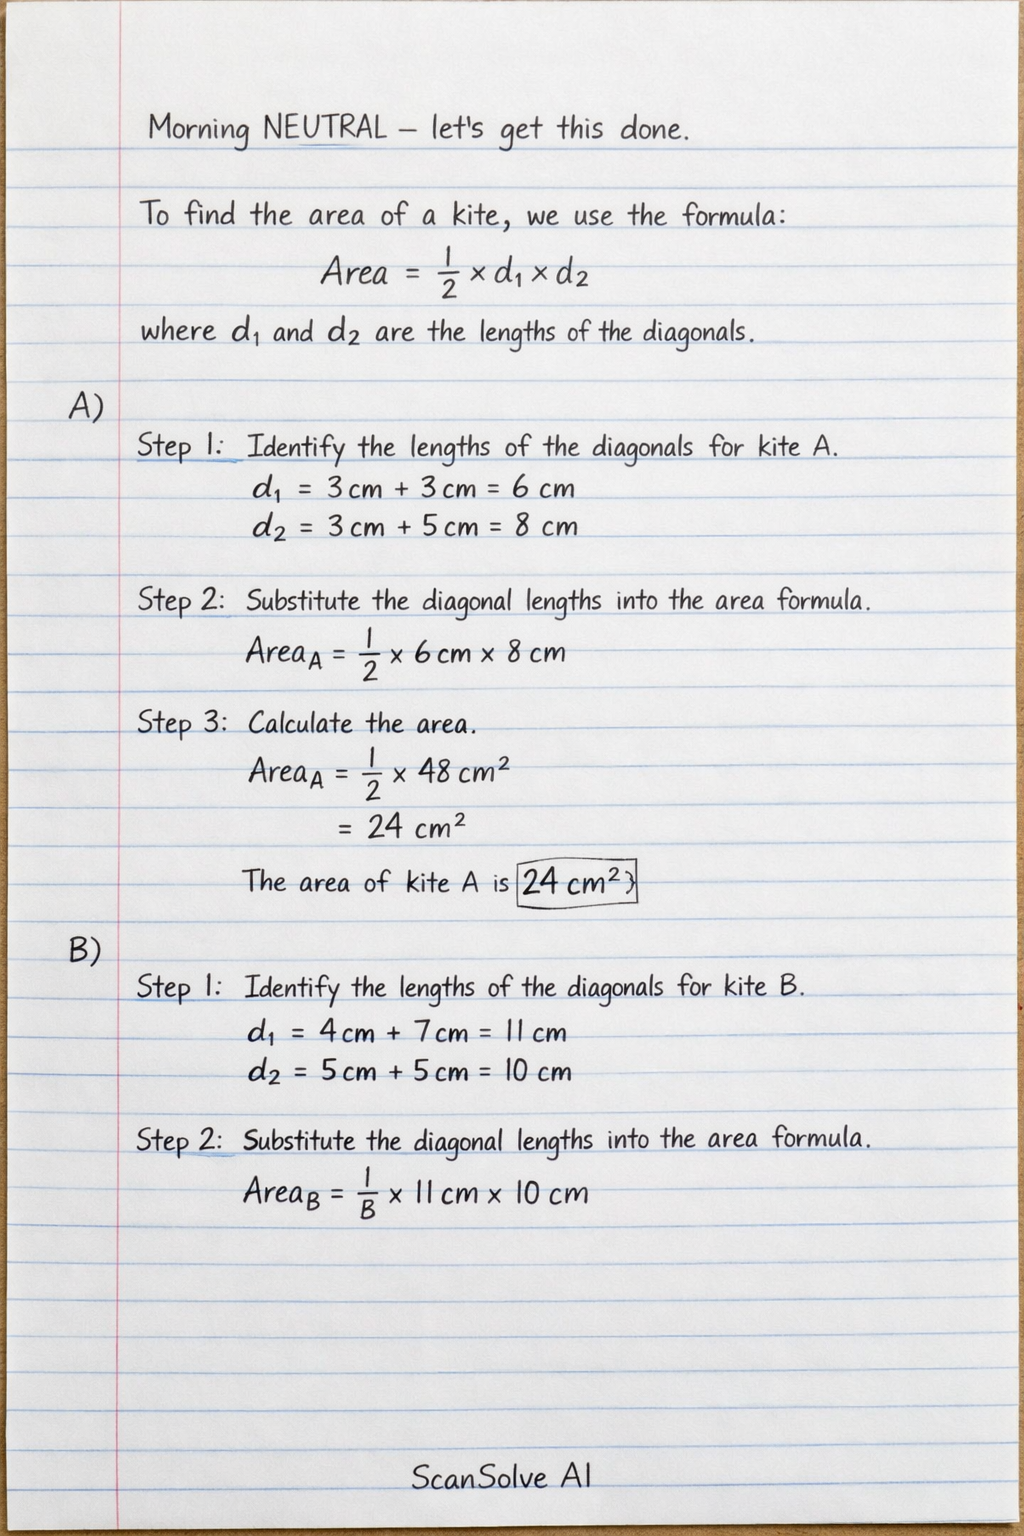 Morning NEUTRAL – let's get this done.
To find the area of a kite, we use the formula:
Area = 1/2 × d₁ × d₂
where d₁ and d₂ are the lengths of the diagonals.
A)
Step 1: Identify the lengths of the diagonals for kite A.
d₁ = 3 cm + 3 cm = 6 cm
d₂ = 3 cm + 5 cm = 8 cm
Step 2: Substitute the diagonal lengths into the area formula.
Area_A = 1/2 × 6 cm × 8 cm
Step 3: Calculate the area.
Area_A = 1/2 × 48 cm²
= 24 cm²
The area of kite A is 24 cm²}
B)
Step 1: Identify the lengths of the diagonals for kite B.
d₁ = 4 cm + 7 cm = 11 cm
d₂ = 5 cm + 5 cm = 10 cm
Step 2: Substitute the diagonal lengths into the area formula.
Area_B = 1/B × 11 cm × 10 cm
ScanSolve AI